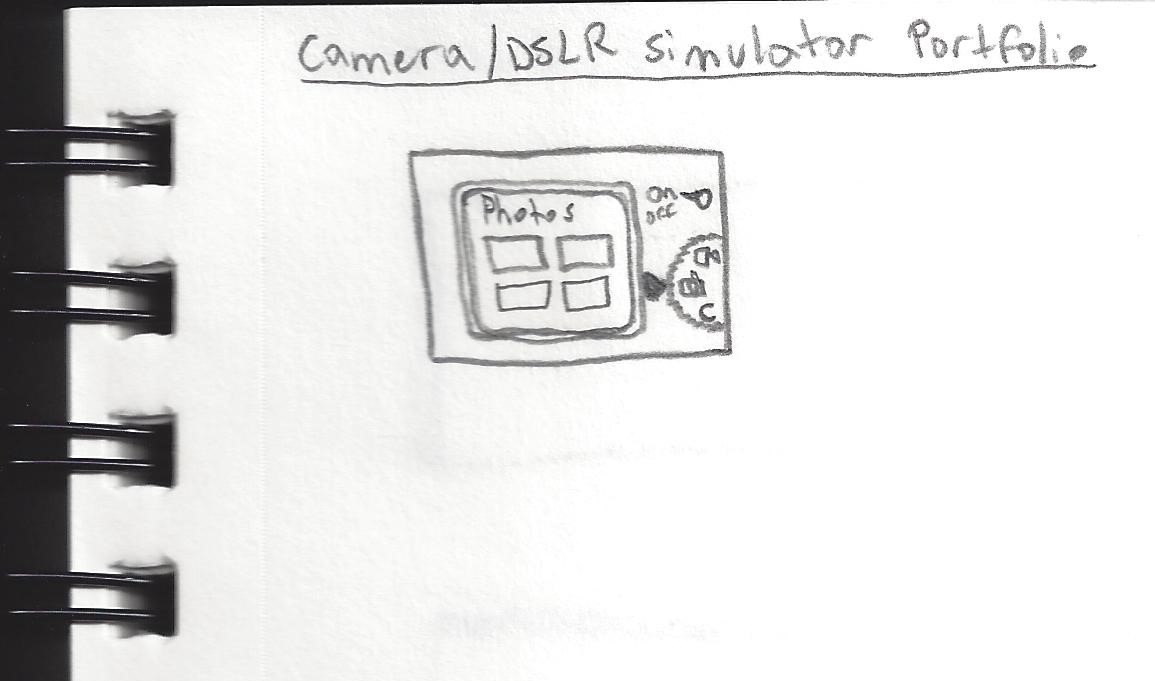 Camera/DSLR simulator Portfolio
Photos
ON
OFF
C